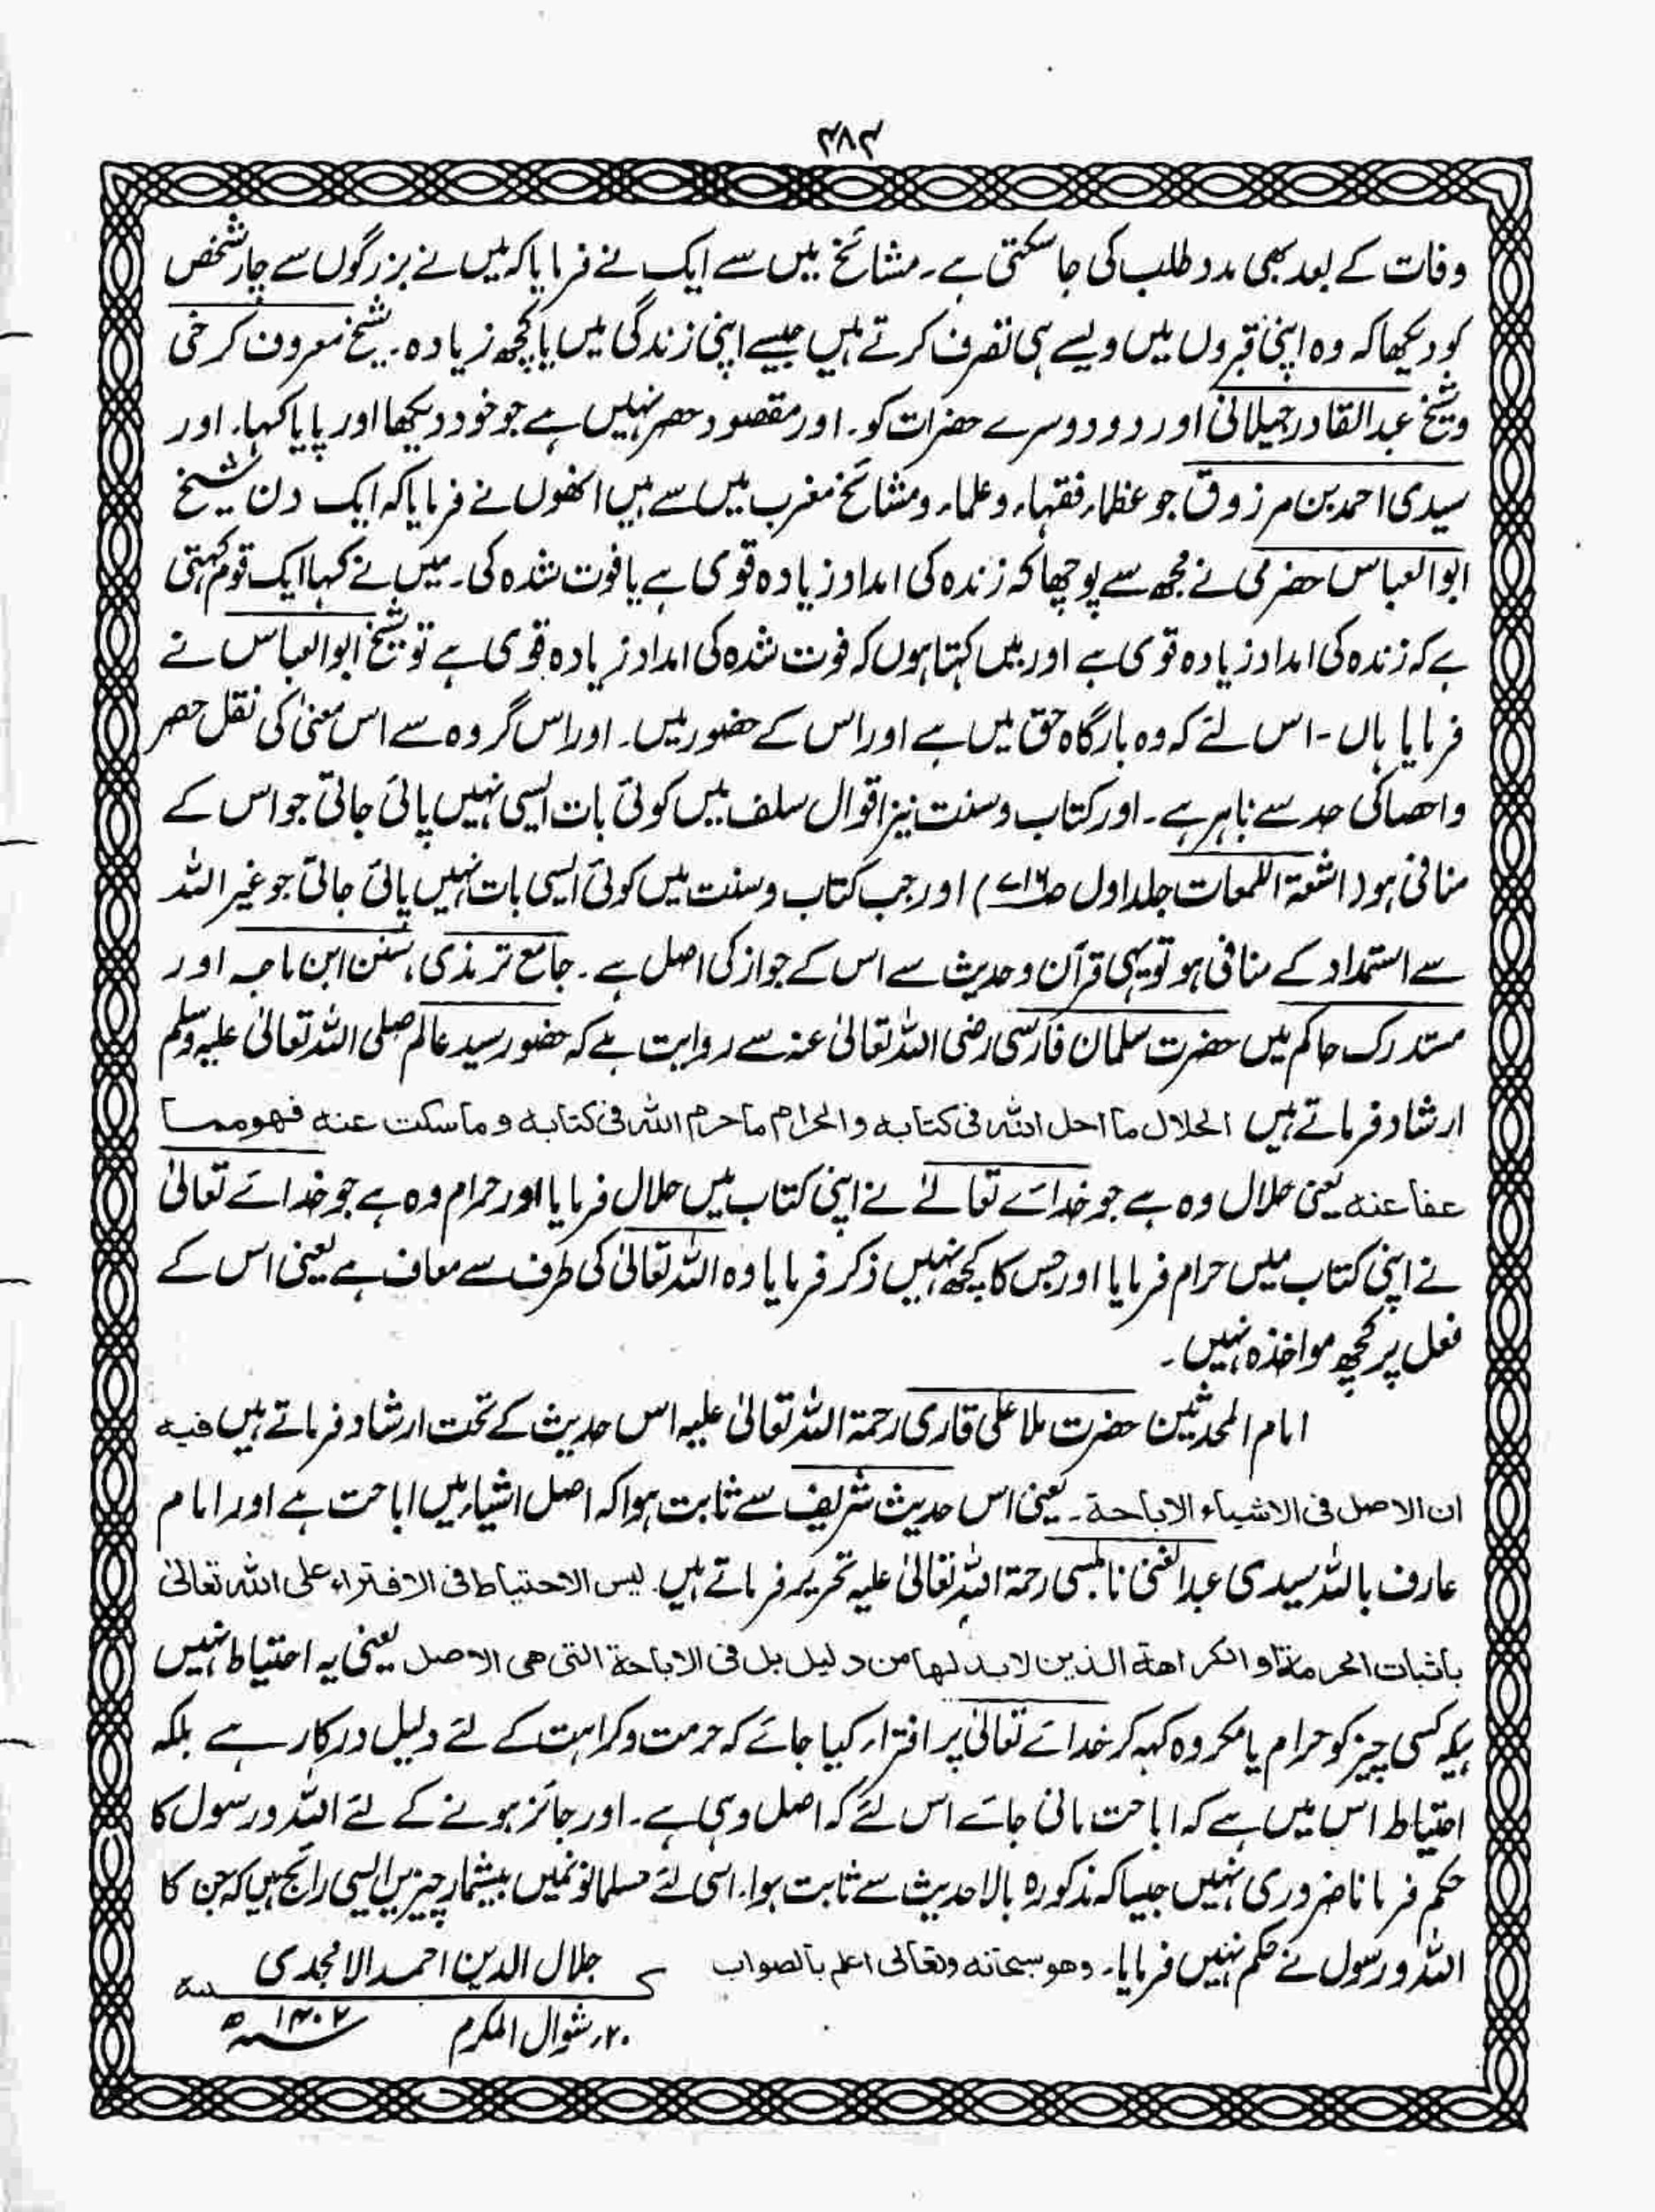 ۳۸۳
وفات کے بعد بھی مدد طلب کی جا سکتی ہے۔ مشائخ میں سے ایک نے فرمایا کہ میں نے بزرگوں سے چار شخص
کو دیکھا کہ وہ اپنی قبروں میں ویسے ہی تصرف کرتے ہیں جیسے اپنی زندگی میں یا کچھ زیادہ۔ شیخ معروف کرخی
و شیخ عبدالقادر جیلانی اور دو دوسرے حضرات کو۔ اور مقصود حصر نہیں ہے جو خود دیکھا اور پایا کہا۔ اور
سیدی احمد بن مرزوق جو عظماء فقہاء وعلماء ومشائخ مغرب میں سے ہیں انھوں نے فرمایا کہ ایک دن شیخ
ابوالعباس حضرمی نے مجھ سے پوچھا کہ زندہ کی امداد زیادہ قوی ہے یا فوت شدہ کی۔ میں نے کہا ایک قوم کہتی
ہے کہ زندہ کی امداد زیادہ قوی ہے اور میں کہتا ہوں کہ فوت شدہ کی امداد زیادہ قوی ہے تو شیخ ابوالعباس نے
فرمایا ہاں - اس لئے کہ وہ بارگاہ حق میں ہے اور اس کے حضور میں۔ اور اس گروہ سے اس معنیٰ کی نقل حصر
واحصا کی حد سے باہر ہے۔ اور کتاب وسنت نیز اقوال سلف میں کوئی بات ایسی نہیں پائی جاتی جو اس کے
منافی ہو (اشعۃ اللمعات جلد اول ص۷۱۶) اور جب کتاب وسنت میں کوئی ایسی بات نہیں پائی جاتی جو غیر اللہ
سے استمداد کے منافی ہو تو یہی قرآن وحدیث سے اس کے جواز کی اصل ہے۔ جامع ترمذی، سنن ابن ماجہ اور
مستدرک حاکم میں حضرت سلمان فارسی رضی اللہ تعالیٰ عنہ سے روایت ہے کہ حضور سید عالم صلی اللہ تعالیٰ علیہ وسلم
ارشاد فرماتے ہیں الحلال ما احل اللہ فی کتابہ والحرام ما حرم اللہ فی کتابہ وما سکت عنہ فھو مما
عفا عنہ یعنی حلال وہ ہے جو خدائے تعالےٰ نے اپنی کتاب میں حلال فرمایا اور حرام وہ ہے جو خدائے تعالیٰ
نے اپنی کتاب میں حرام فرمایا اور جس کا کچھ نہیں ذکر فرمایا وہ اللہ تعالیٰ کی طرف سے معاف ہے یعنی اس کے
فعل پر کچھ مواخذہ نہیں۔
امام المحدثین حضرت ملا علی قاری رحمۃ اللہ تعالیٰ علیہ اس حدیث کے تحت ارشاد فرماتے ہیں فیہ
ان الاصل فی الاشیاء الاباحۃ۔ یعنی اس حدیث شریف سے ثابت ہوا کہ اصل اشیاء میں اباحت ہے اور امام
عارف باللہ سیدی عبدالغنی نابلسی رحمۃ اللہ تعالیٰ علیہ تحریر فرماتے ہیں لیس الاحتیاط فی الافتراء علی اللہ تعالیٰ
باثبات الحرمۃ او الکراھۃ الذین لابد لھا من دلیل بل فی الاباحۃ التی ھی الاصل یعنی یہ احتیاط نہیں
ہیکہ کسی چیز کو حرام یا مکروہ کہہ کر خدائے تعالیٰ پر افتراء کیا جائے کہ حرمت وکراہت کے لئے دلیل درکار ہے بلکہ
احتیاط اس میں ہے کہ اباحت مانی جائے اس لئے کہ اصل وہی ہے۔ اور جائز ہونے کے لئے اللہ ورسول کا
حکم فرمانا ضروری نہیں جیسا کہ مذکورہ بالا حدیث سے ثابت ہوا۔ اسی لئے مسلمانوں میں بیشمار چیزیں ایسی رائج ہیں کہ جن کا
اللہ ورسول نے حکم نہیں فرمایا۔ وھو سبحانہ وتعالی اعلم بالصواب
جلال الدین احمد الامجدی
۲۰؍ شوال المکرم ۱۴۰۲ھ